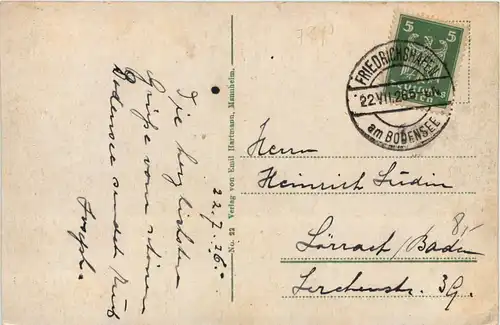 Die herzlichsten
Grüße vom schönen
Bodensee sendet Euch
Joseph.
22.7.26.
No. 22 Verlag von Emil Hartmann, Mannheim.
5 5
FRIEDRICHSHAFEN
22.VII.26
am BODENSEE
Herrn
Heinrich Südin
Lörrach/Baden
Lerchenstr. 39.
8,-